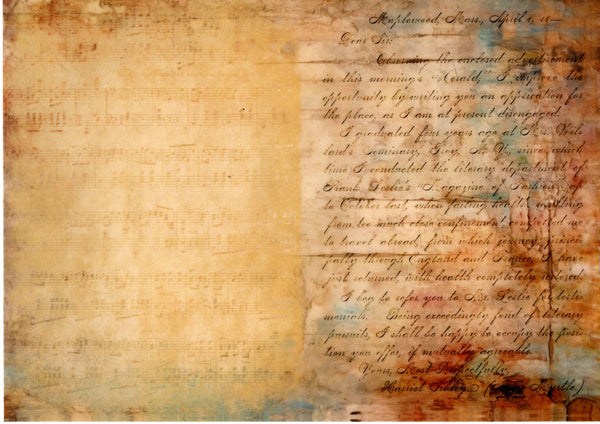 Maplewood, Mass., April 1, 18—
Dear Sir:
Observing the enclosed advertisement
in this morning's "Herald," I improve the
opportunity by writing you an application for
the place, as I am at present disengaged.
I graduated four years ago at Mrs. Wel-
lard's Seminary, Troy, N. Y., since which
time I conducted the literary department of
Frank Leslie's Magazine of Fashion, up
to October last, when failing health, resulting
from too much close confinement, compelled me
to travel abroad, from which journey, princi-
pally through England and France, I have
just returned, with health completely restored
I beg to refer you to Mr. Leslie for testi-
monials. Being exceedingly fond of literary
pursuits, I shall be happy to occupy the posi-
tion you offer, if mutually agreeable.
Yours, Most Respectfully,
Harriet Myrtle.)